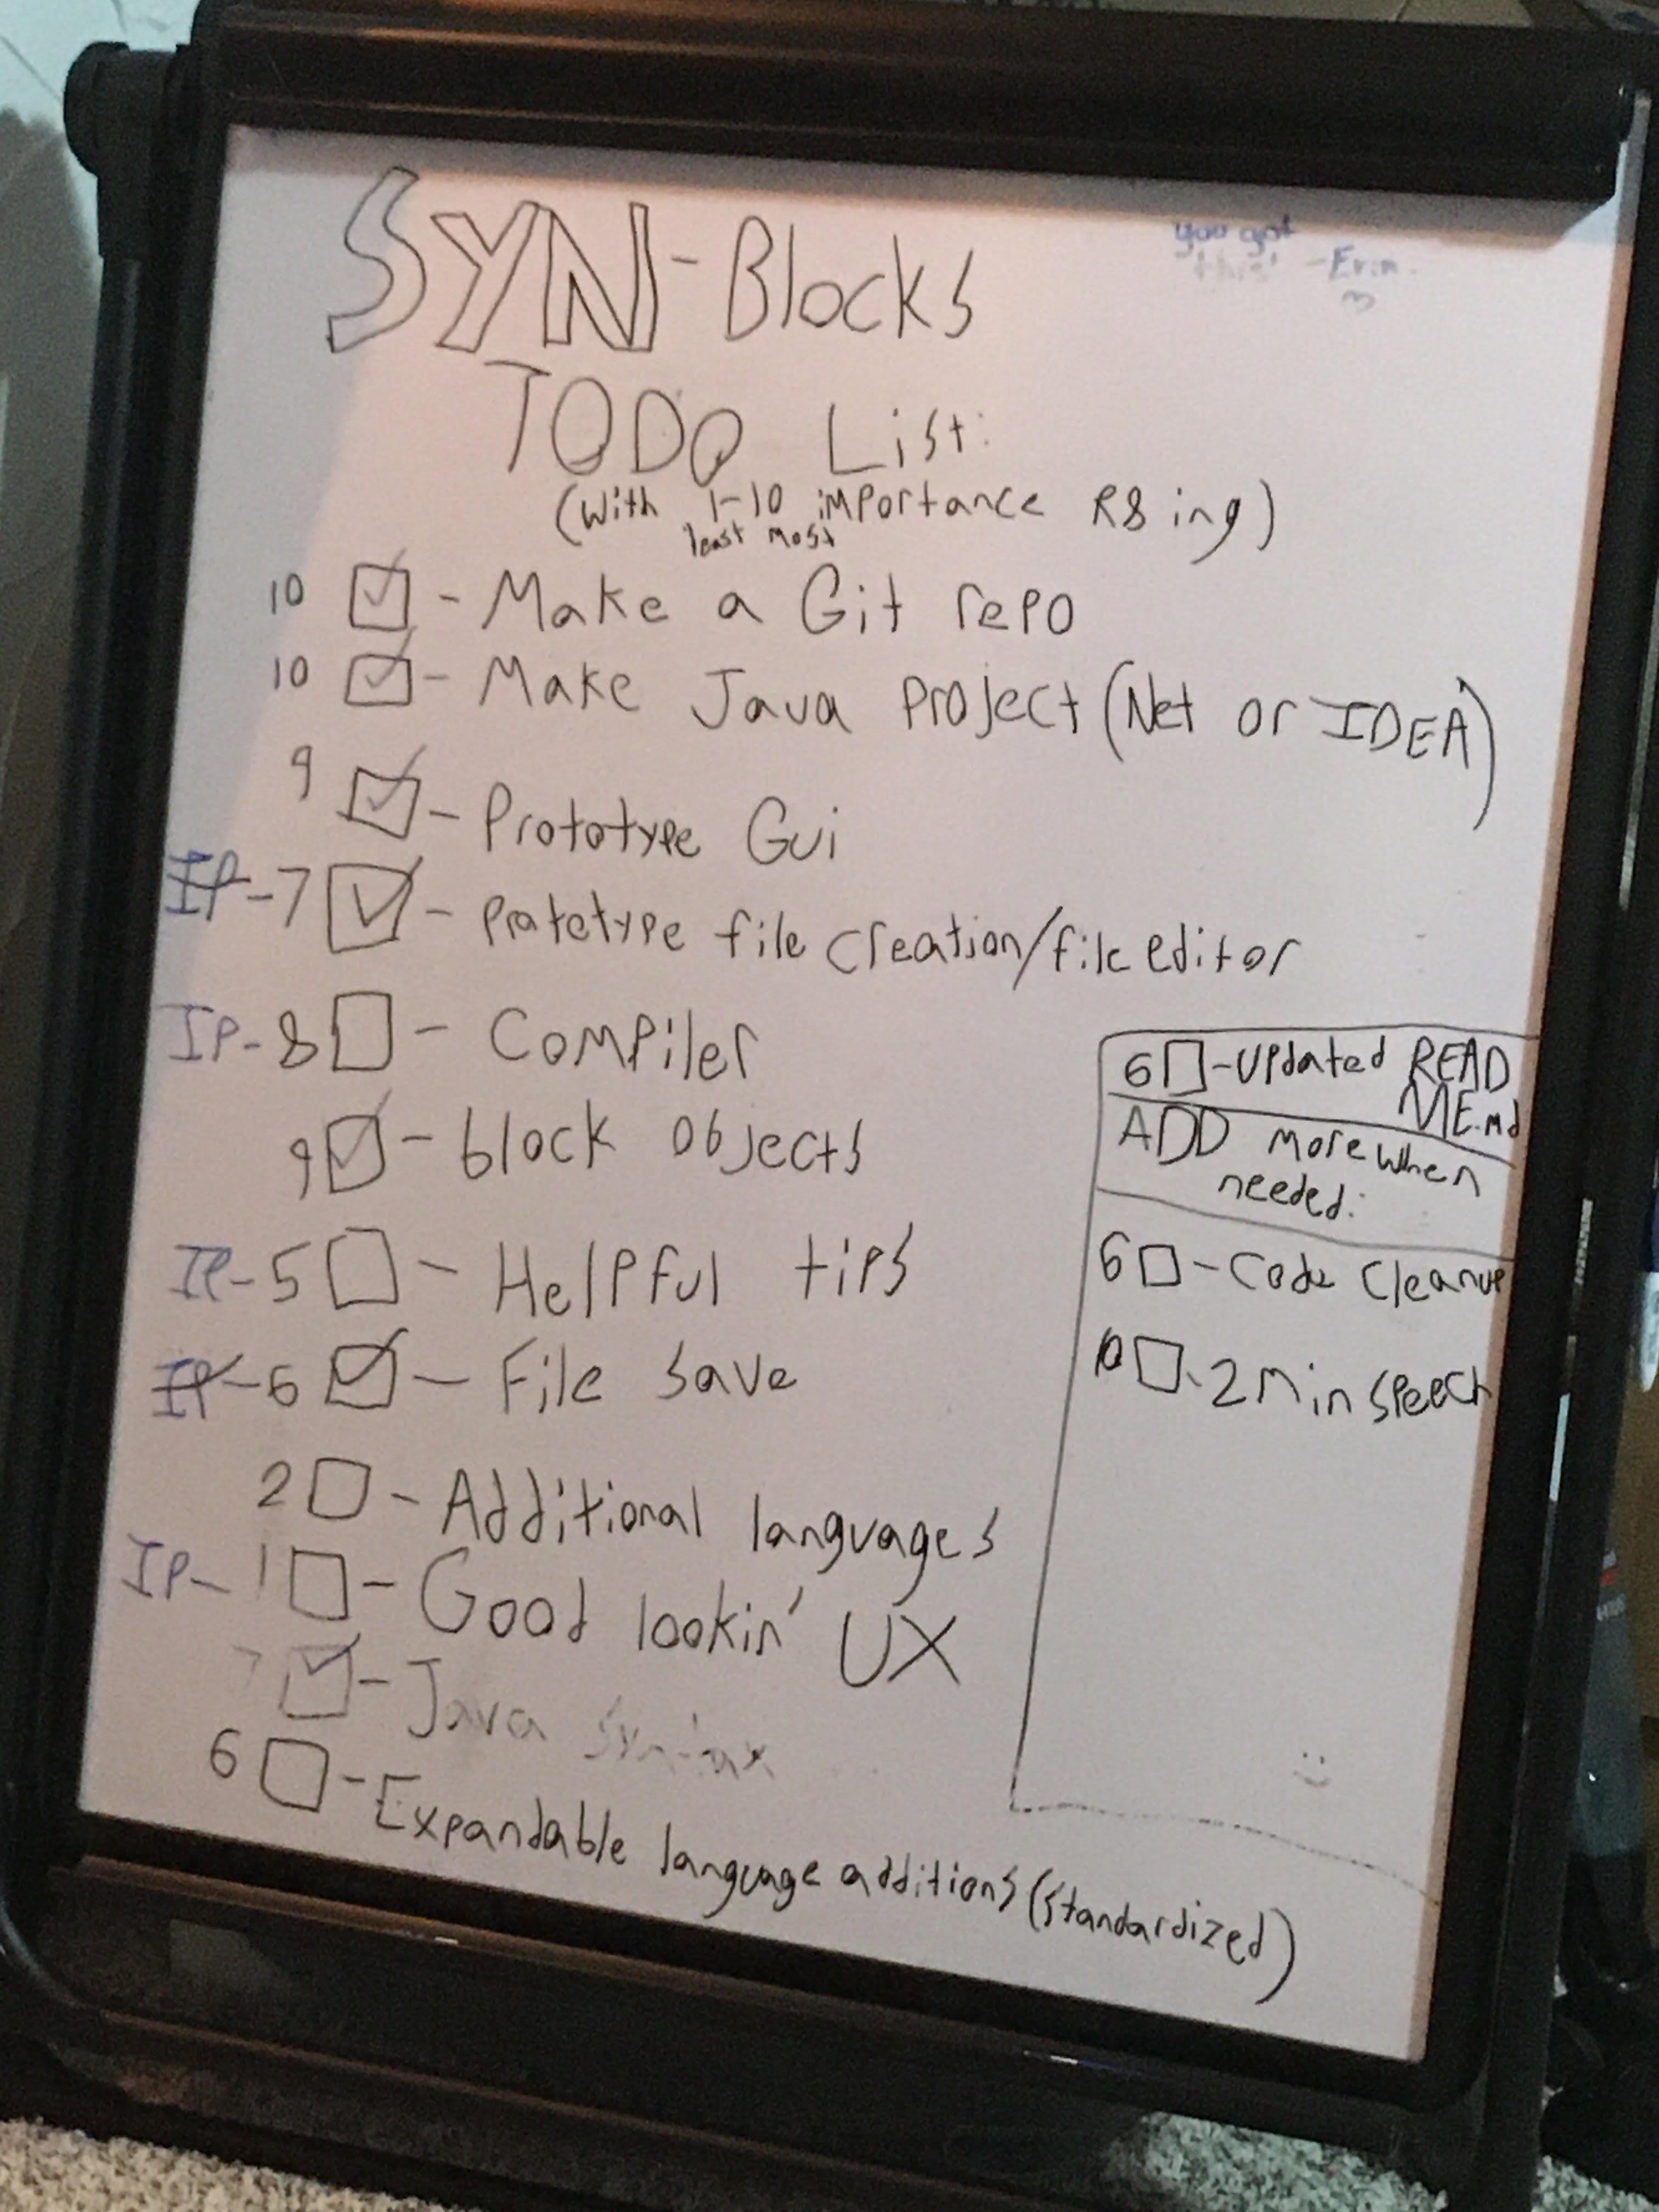 SYN-Blocks
you got
this! -Erin
TODO List:
(With 1-10 importance R8ing)
least most
10 - Make a Git repo
10 - Make Java Project (Net or IDEA)
9 - Prototype Gui
IP-7 - Prototype file creation/file editor
IP-8 - Compiler
9 - block objects
IP-5 - Helpful tips
IP-6 - File save
2 - Additional languages
IP-1 - Good lookin' UX
7 - Java Syntax
6 - Expandable language additions (standardized)
6 - Updated READ
ME.md
ADD more when
needed:
6 - Code cleanup
10 - 2 min speech